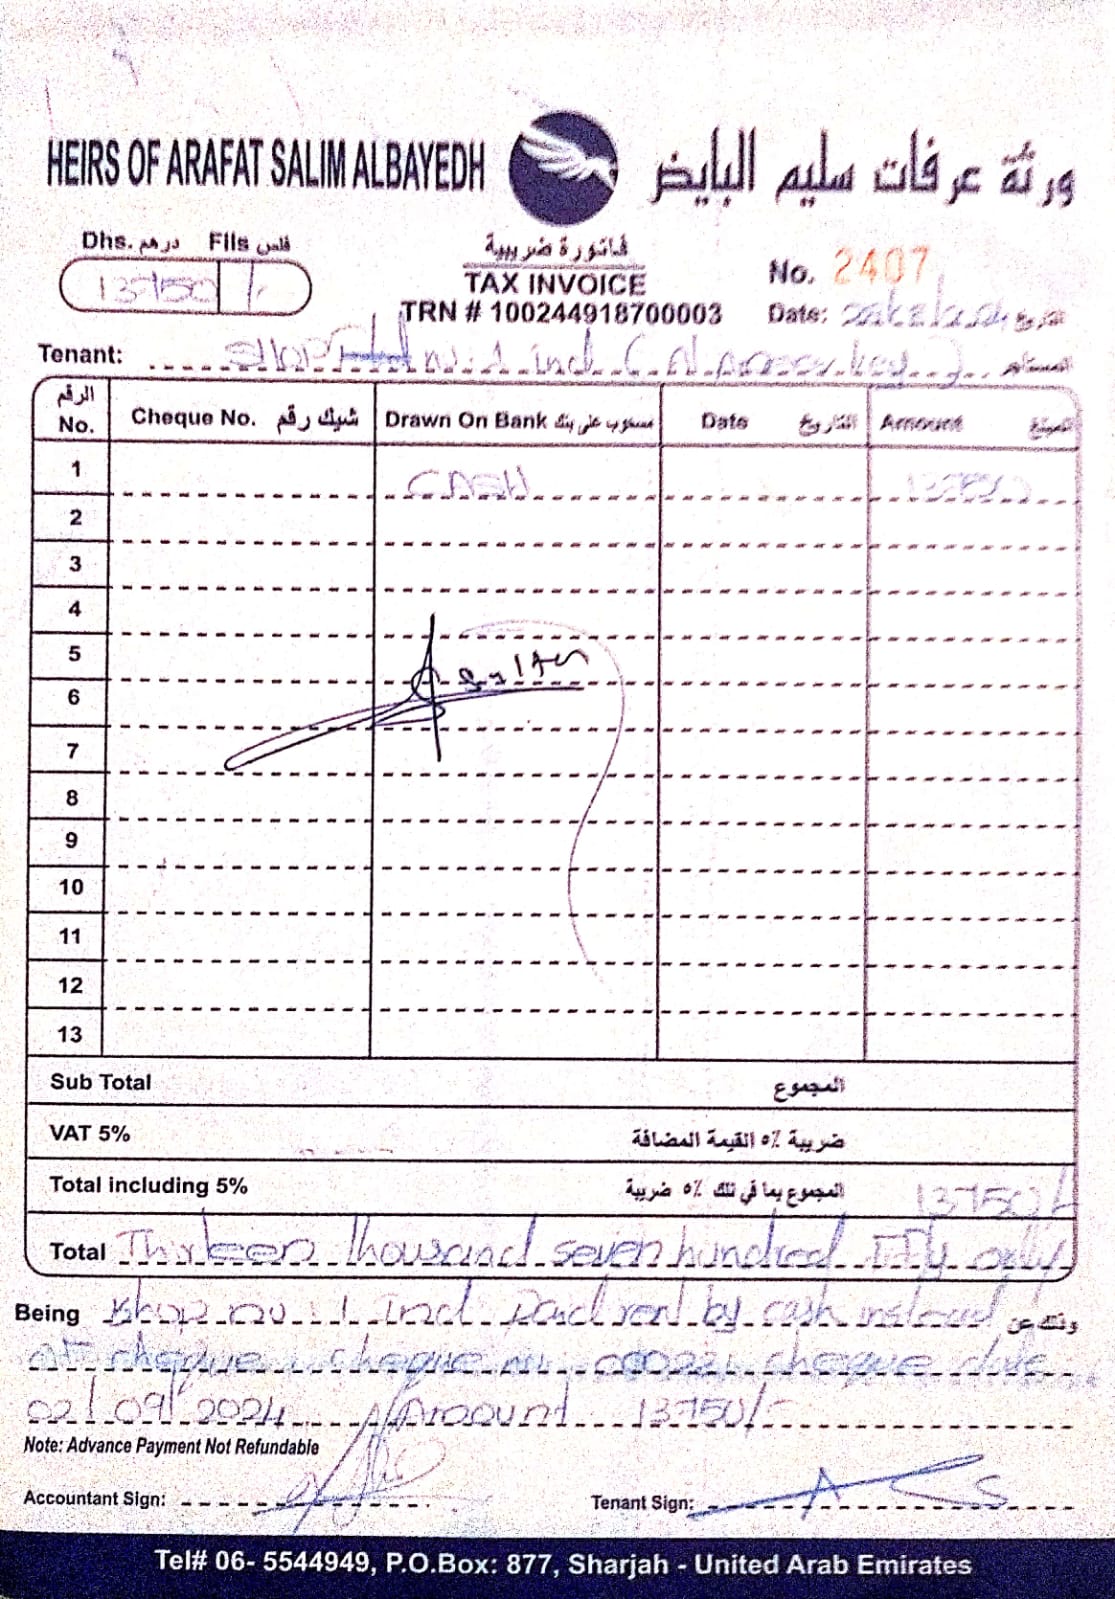 HEIRS OF ARAFAT SALIM ALBAYEDH ورثة عرفات سليم البايض
Dhs. درهم Fils فلس
13750 /-
فاتورة ضريبية
TAX INVOICE
TRN # 100244918700003
No. 2407
Date: التاريخ
Tenant: SHOP ind المستأجر
الرقم No. Cheque No. شيك رقم Drawn On Bank مسحوب على بنك Date التاريخ Amount المبلغ
1 CASH 13750
2
3
4
5
6
7
8
9
10
11
12
13
Sub Total المجموع
VAT 5% ضريبة ٥٪ القيمة المضافة
Total including 5% المجموع بما في ذلك ٥٪ ضريبة 13750/-
Total Thirteen Thousand seven hundred Fifty only
Being shop no 1 ind paid rent by cash instead وذلك عن
of cheque cheque no 000221 cheque date
02/09/2024 Amount 13750/-
Note: Advance Payment Not Refundable
Accountant Sign: Tenant Sign:
Tel# 06- 5544949, P.O.Box: 877, Sharjah - United Arab Emirates